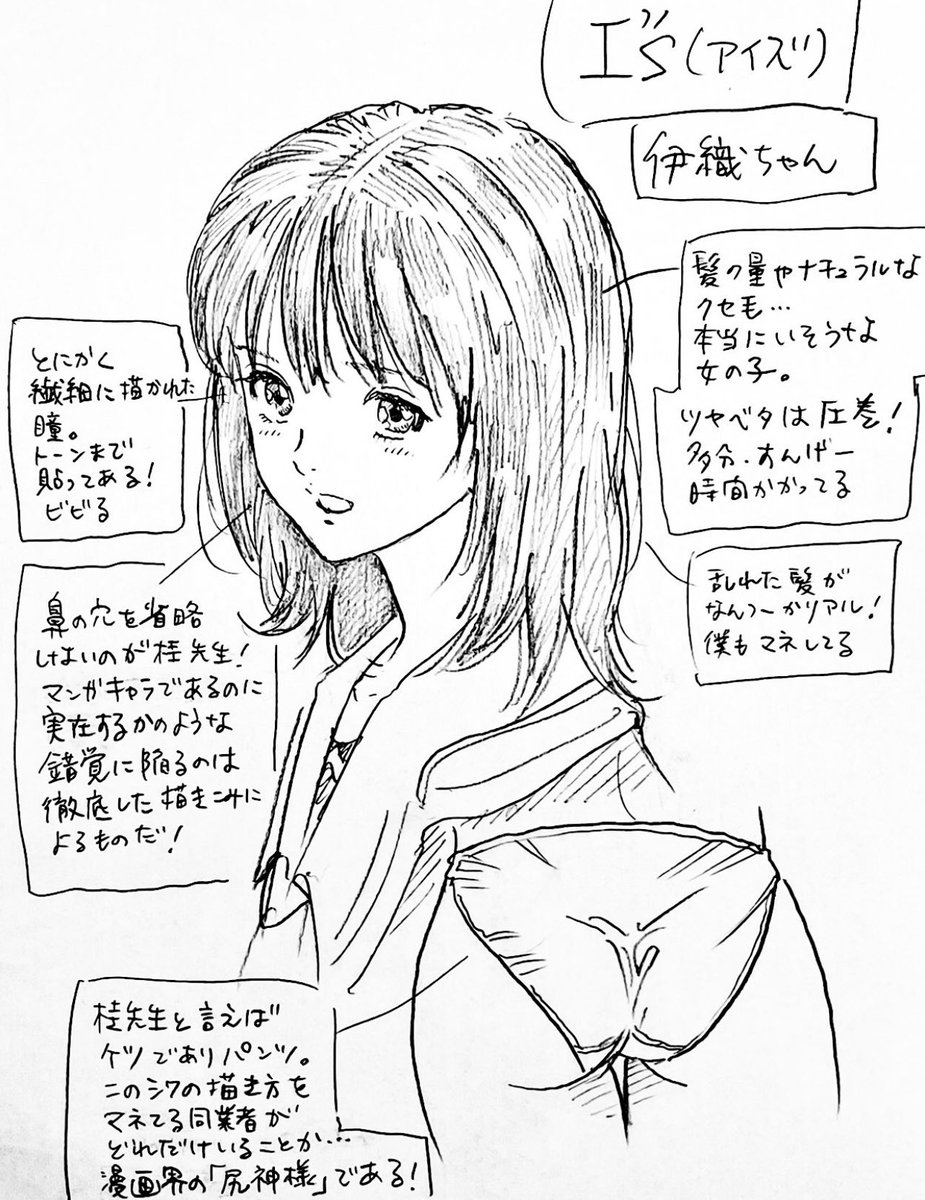 I"s(アイズ)
伊織ちゃん
髪の量やナチュラルな
クセ毛…
本当にいそうな
女の子。
ツヤベタは圧巻!
多分、すんげー
時間かかってる
とにかく
繊細に描かれた
瞳。
トーンまで
貼ってある!
ビビる
乱れた髪が
なんつーかリアル!
僕もマネしてる
鼻の穴を省略
しないのが桂先生!
マンガキャラであるのに
実在するかのような
錯覚に陥るのは
徹底した描きこみに
よるものだ!
桂先生と言えば
ケツでありパンツ。
このシワの描き方を
マネてる同業者が
どれだけいることか…
漫画界の「尻神様」である!